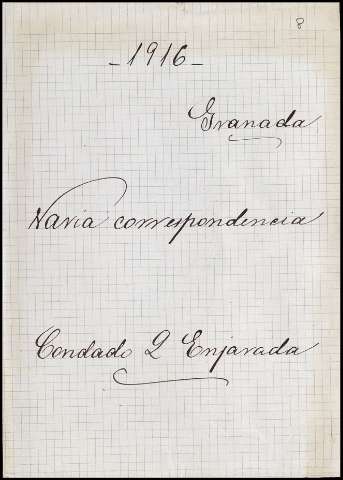 8
- 1916 -
Granada
Varia correspondencia
Condado L Enjarada